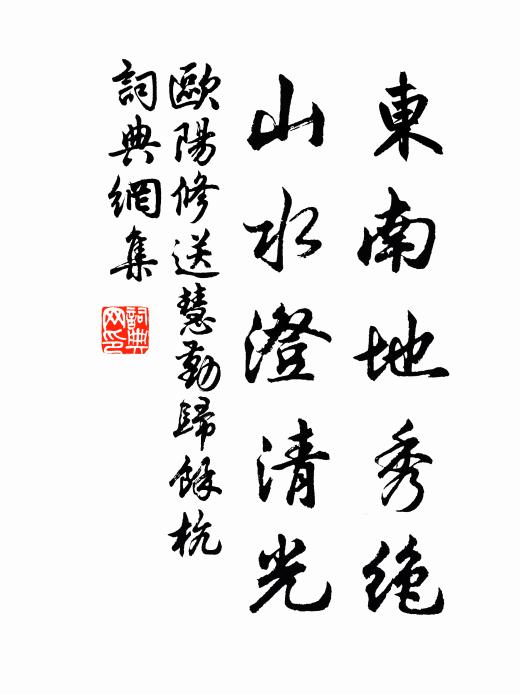 東南地秀絕
山水澄清光
歐陽修送慧勤歸餘杭
詞典網集
詞典
网印